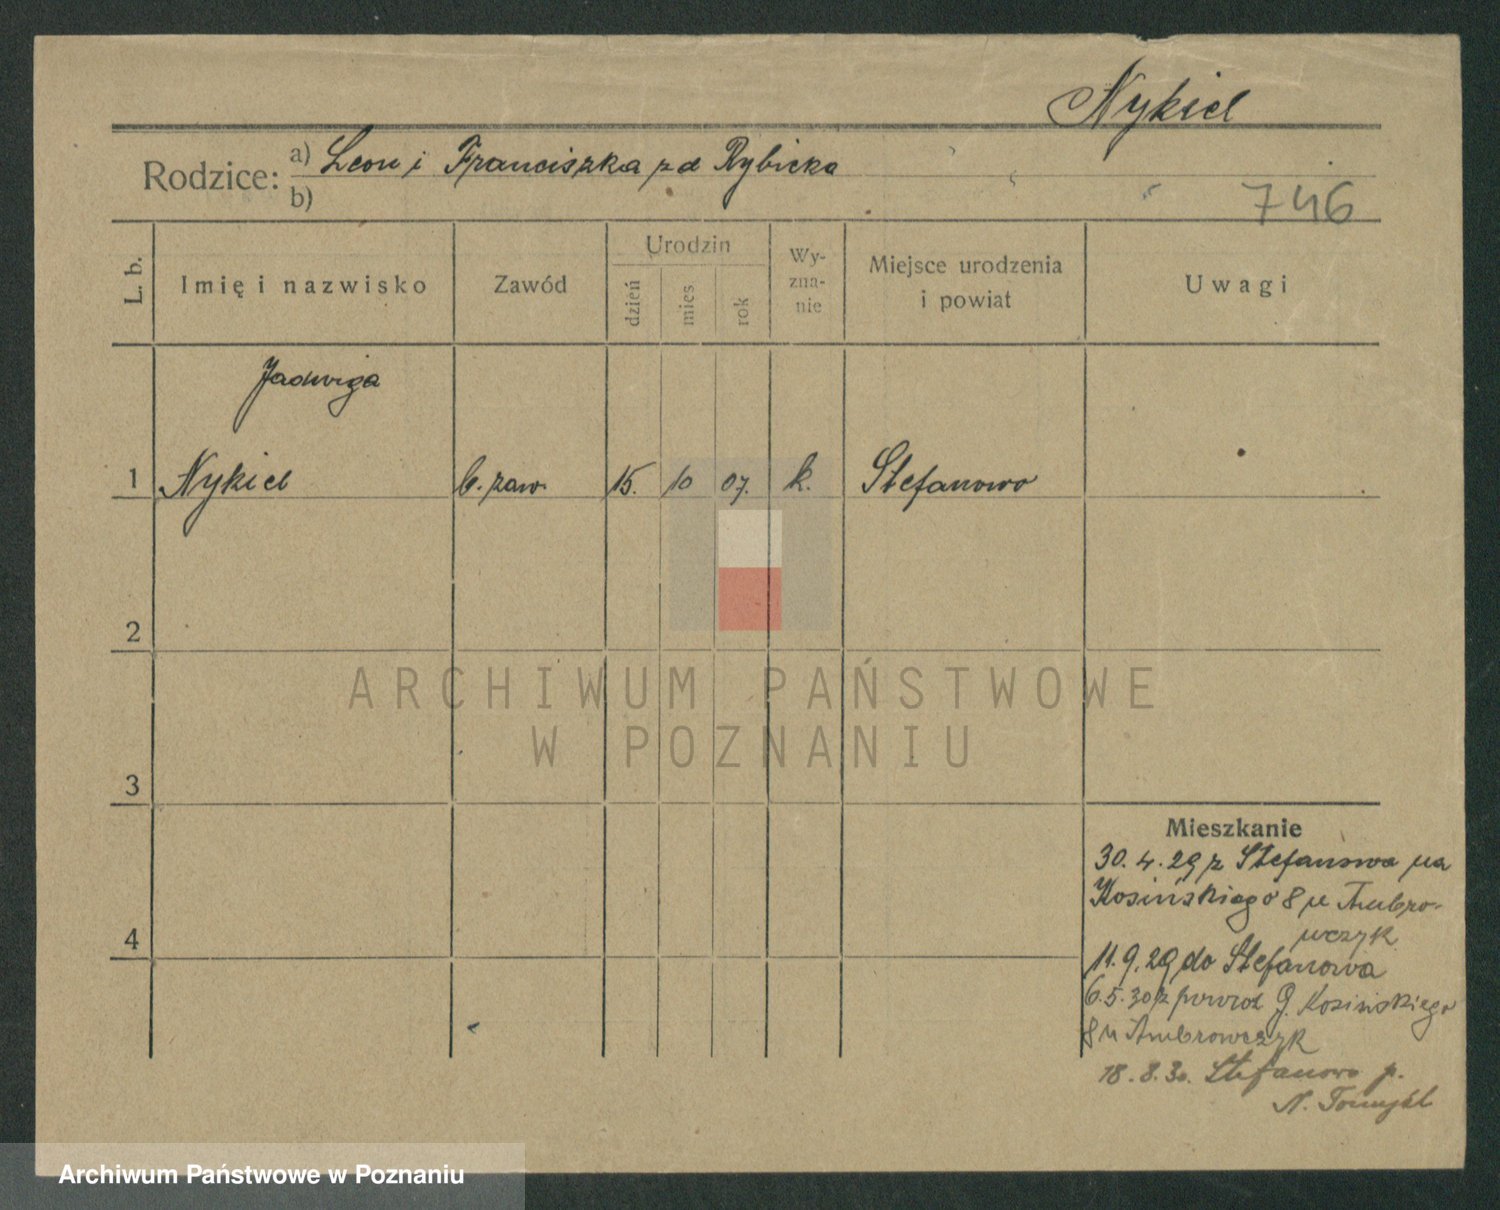 Nykiel
Rodzice: a) Leon i Franciszka zd Rybicka
b)
746
L. b. Imię i nazwisko Zawód Urodzin dzień mies rok Wy-zna-nie Miejsce urodzenia i powiat Uwagi
Jadwiga
1 Nykiel b. zaw. 15. 10 07. k. Stefanowo
2
3
4
Mieszkanie
30.4.29 z Stefanowa na
Kosińskiego 8 u Ambro-
wczyk
11.9.29 do Stefanowa
6.5.30 z powrot G. Kosińskiego
8 u Ambrowczyk
18.8.30. Stefanowo p.
N. Tomyśl
ARCHIWUM PAŃSTWOWE
W POZNANIU
Archiwum Państwowe w Poznaniu